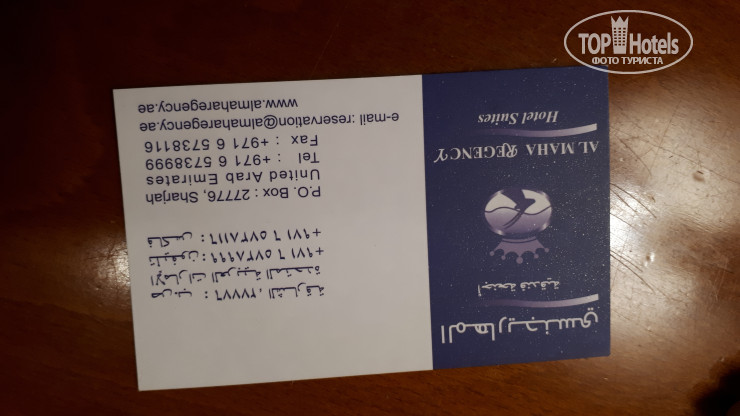 المها ريجنسي
أجنحة فندقية
AL MAHA REGENCY
Hotel Suites
ص.ب : ٢٧٧٧٦ ، الشارقة
الإمارات العربية المتحدة
تليفون : ٥٧٣٨٩٩٩ ٦ ٩٧١+
فاكس : ٥٧٣٨١١٦ ٦ ٩٧١+
P.O. Box : 27776, Sharjah
United Arab Emirates
Tel : +971 6 5738999
Fax : +971 6 5738116
e-mail : reservation@almaharegency.ae
www.almaharegency.ae
TOP Hotels
ФОТО ТУРИСТА